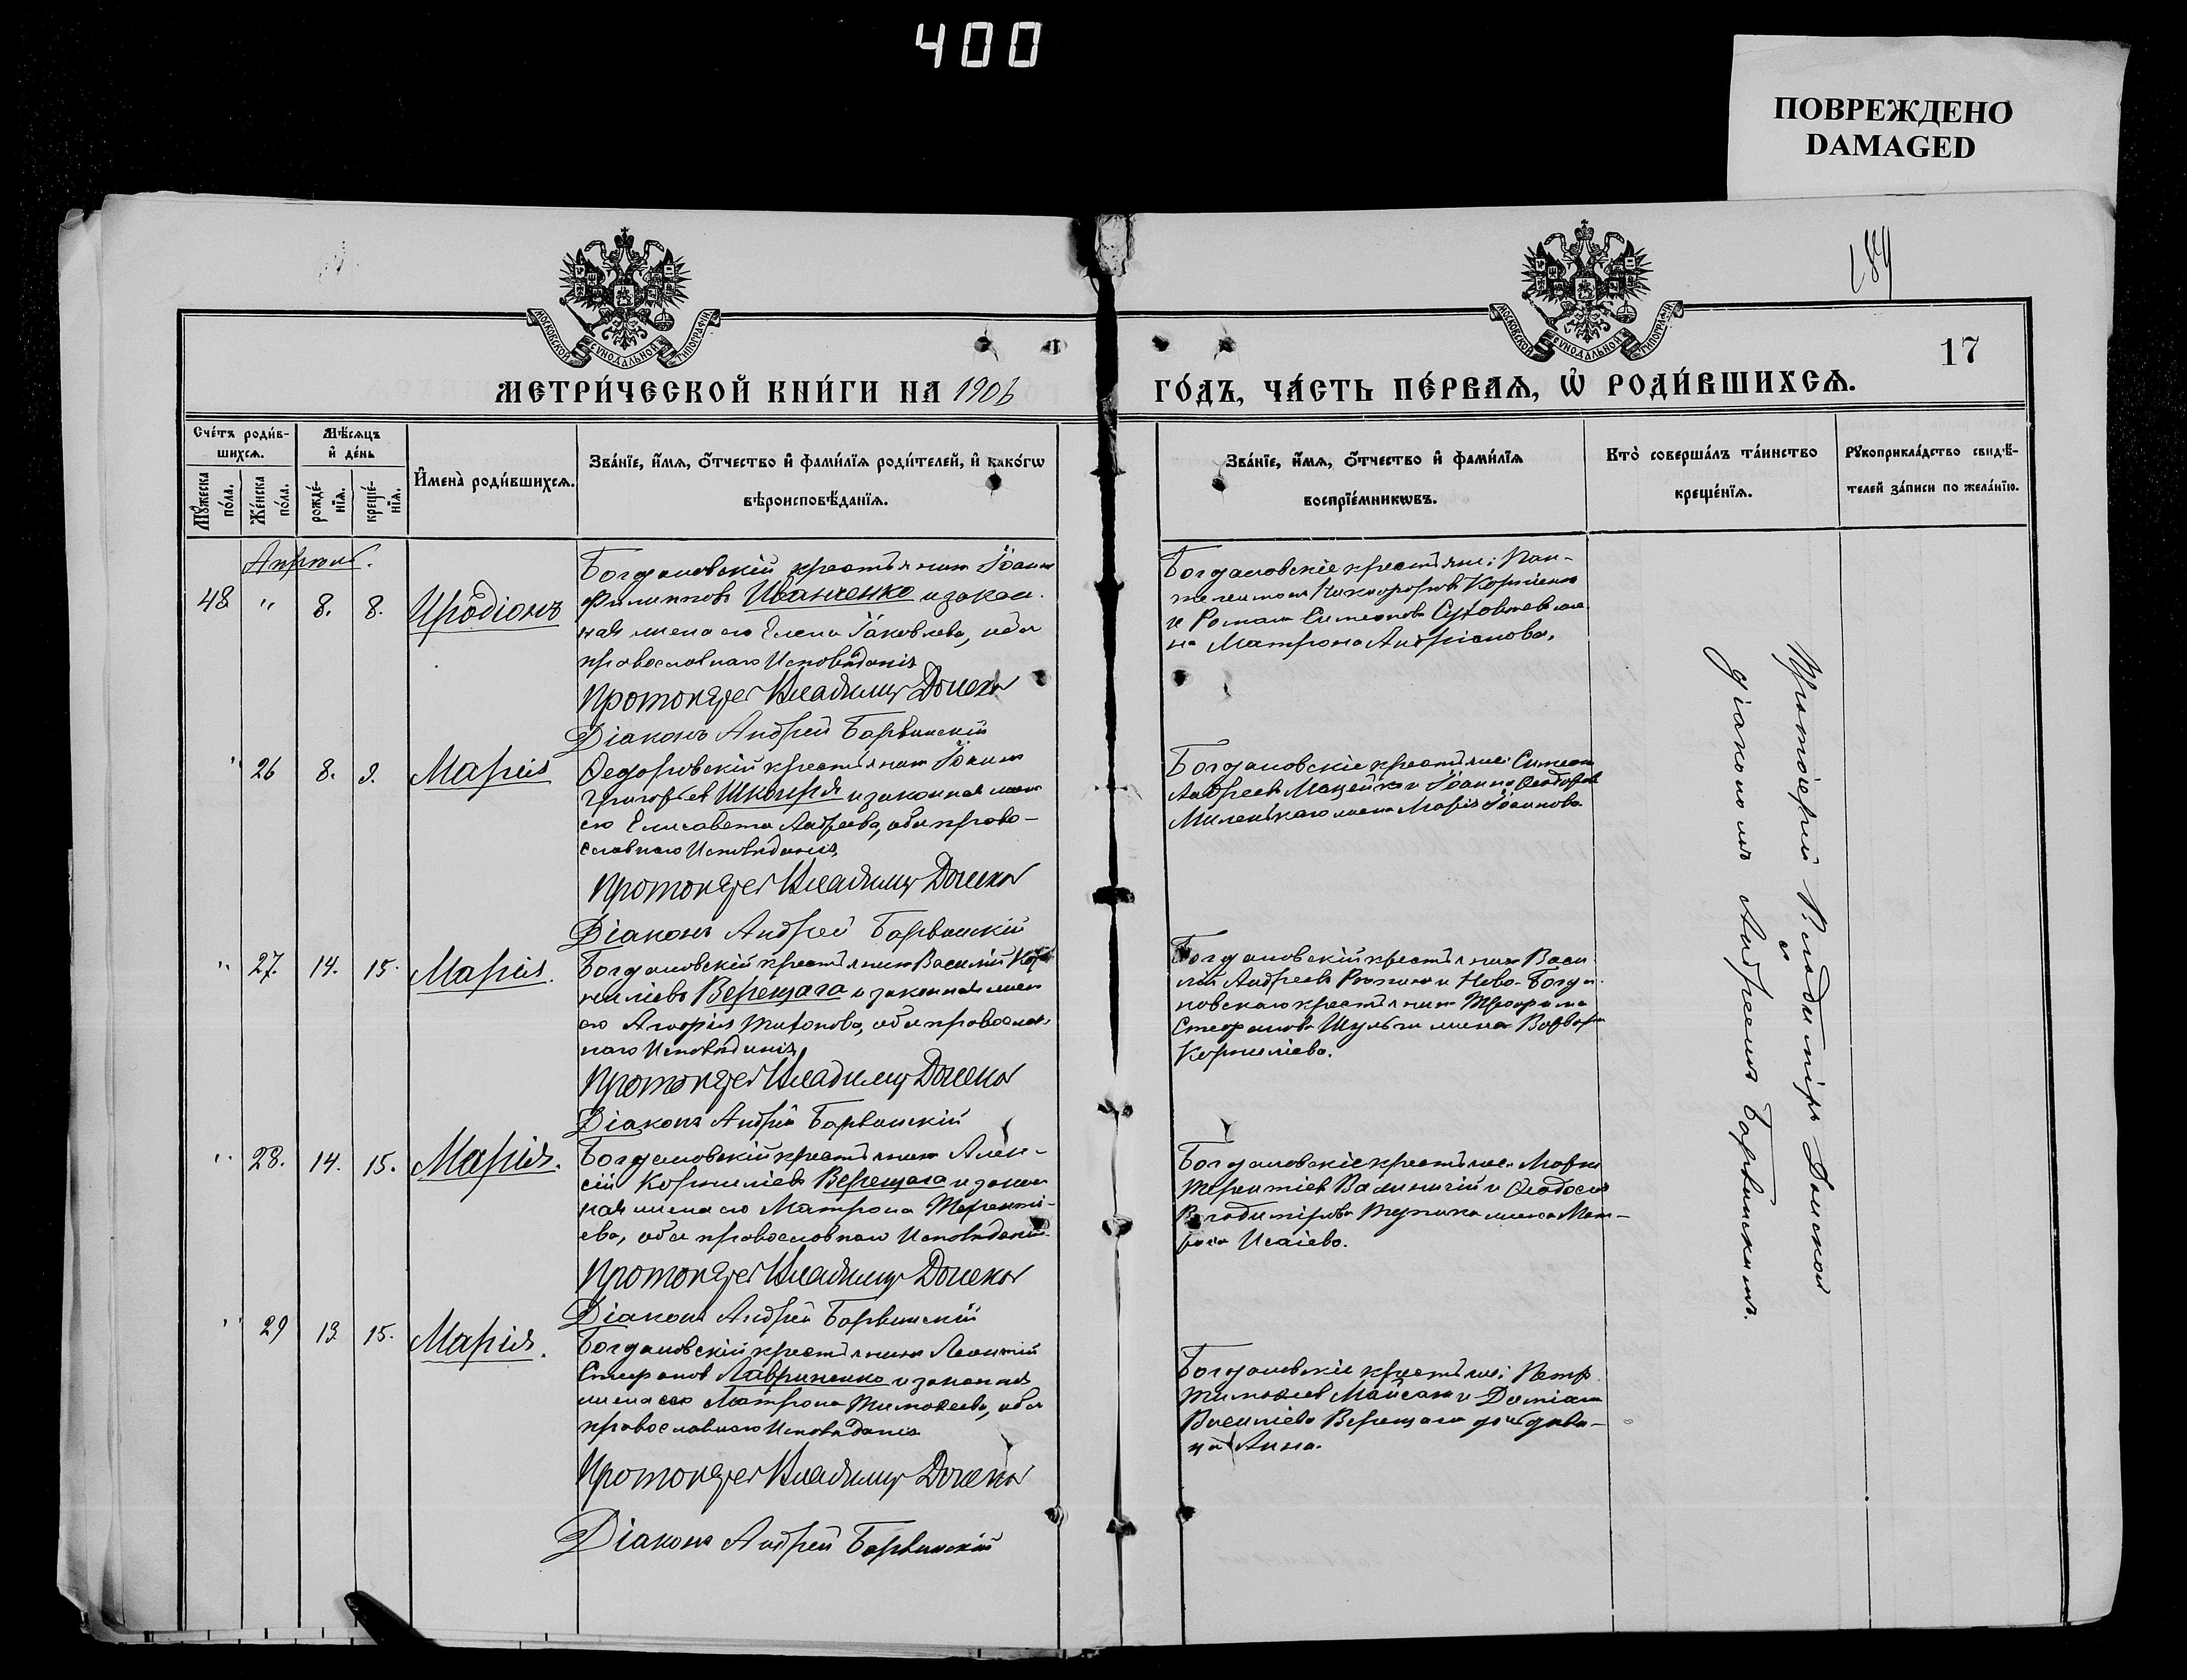 400
ПОВРЕЖДЕНО
DAMAGED
184
17
МОСКОВСКОЙ СУНОДАЛЬНОЙ ТИПОГРАФІИ
МОСКОВСКОЙ СУНОДАЛЬНОЙ ТИПОГРАФІИ
МЕТРИ́ЧЕСКОЙ КНИ́ГИ НА 1906 ГО́ДЪ, ЧА́СТЬ ПЕ́РВАѦ, Ѡ҆ РОДИ́ВШИХСѦ.
Сче́тъ роди́в-
шихсѧ.
Мꙋ́жеска
по́ла.
Же́нска
по́ла.
Мѣ́сѧцъ
и҆ де́нь
рожде́-
нїѧ.
креще́-
нїѧ.
И҆мена̀ роди́вшихсѧ.
Зва́нїе, и҆́мѧ, ѻ҆́тчество и҆ фами́лїѧ роди́телей, и҆ како́гѡ
вѣроисповѣ́данїѧ.
Зва́нїе, и҆́мѧ, ѻ҆́тчество и҆ фами́лїѧ
воспрїе́мникѡвъ.
Кто̀ соверша́лъ та́инство
креще́нїѧ.
Рꙋкоприкла́дство свидѣ́-
телей за́писи по жела́нїю.
Апрѣль.
48 " 8. 8. Иродіонъ
Богдановскій крестьянинъ Іоаннъ
Филипповъ Иванченко и закон.
ная жена его Елена Іаковлева, оба
православнаго Исповѣданія
Протоіерей Владиміръ Донской
Діаконъ Андрей Барвинскій
Богдановскіе крестьяне: Пан-
телеимонъ Никифоровъ Корніенко
и Романа Симеонова жена
Матрона Андріанова.
" 26 8. 9. Марія
Ѳедоровскій крестьянинъ Іоаннъ
Григорьевъ Шкондя и законная жена
его Елисавета Андреева, оба право-
славнаго Исповѣданія,
Протоіерей Владиміръ Донской
Діаконъ Андрей Барвинскій
Богдановскіе крестьяне: Симеонъ
Андреевъ Мацейко и Іоанна Ѳеодорова
Миленькаго жена Марія Іоаннова.
" 27. 14. 15. Марія.
Богдановскій крестьянинъ Василій Кор
ниліевъ Верещага и законная жена
его Агафія Титонова, оба православ
наго Исповѣданія,
Протоіерей Владиміръ Донской
Діаконъ Андрей Барвинскій
Богдановскій крестьянинъ Васи
лій Андреевъ и Ново-Богда
новскаго крестьянина Трофима
Стефанова Шульги жена Варвара
Корниліева.
" 28. 14. 15. Марія.
Богдановскій крестьянинъ Алек-
сій Корниліевъ Верещага и закон
ная жена его Матрона Теренті-
ева, оба православнаго Исповѣданія.
Протоіерей Владиміръ Донской
Діаконъ Андрей Барвинскій
Богдановскіе крестьяне: Маркъ
Терентіевъ и Ѳеодосія
Владимірова жена Мат-
рона Исаіева.
" 29 13 15. Марія.
Богдановскій крестьянинъ Леонтій
Стефановъ Лавриненко и законная
жена его Матрона Тимоѳеева, оба
православнаго Исповѣданія
Протоіерей Владиміръ Донской
Діаконъ Андрей Барвинскій
Богдановскіе крестьяне: Петръ
Тимоѳеевъ Майсакъ и Даміана
Василіева Верещаги дочь дѣви-
ца Анна.
Протоіерей Владиміръ Донской
съ
діакономъ Андреемъ Барвинскимъ.